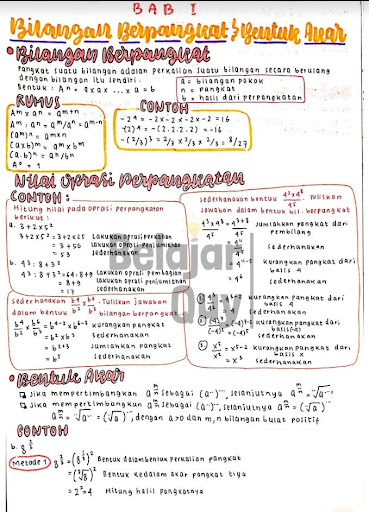 BAB I
Bilangan Berpangkat & Bentuk Akar
• Bilangan Berpangkat
Pangkat suatu bilangan adalah perkalian suatu bilangan secara berulang
dengan bilangan itu sendiri.
Bentuk : Aⁿ = axax ... x a = b
a = bilangan pokok
n = pangkat
b = hasil dari perpangkatan
RUMUS
Aᵐ x aⁿ = aᵐ⁺ⁿ
Aᵐ : aⁿ = aᵐ/aⁿ = aᵐ⁻ⁿ
(aᵐ)ⁿ = aᵐˣⁿ
(axb)ᵐ = aᵐ x bᵐ
(a.b)ⁿ = aⁿ/bⁿ
A⁰ = 1
CONTOH
-2⁴ = -2x-2x-2x-2 = 16
-(2)⁴ = -(2.2.2.2) = -16
-(2/3)³ = 2/3 x 2/3 x 2/3 = 8/27
Nilai Oprasi Perpangkatan
CONTOH :
Hitung nilai pada oprasi perpangkatan
berikut :
a. 3+2x5²
3+2x5² = 3+2x25 Lakukan oprasi perkalian
= 3+50 Lakukan oprasi penjumlahan
= 53 sederhanakan
b. 4³ : 8+3²
4³ : 8+3² = 64 : 8+9 Lakukan oprasi pembagian
= 8+9 Lakukan oprasi penjumlahan
= 17 sederhanakan
sederhanakan b⁴/b² x b⁶/b³ . Tuliskan jawaban
dalam bentuk bilangan berpangkat
b⁴/b² x b⁶/b³ = b⁴⁻² x b⁶⁻³ kurangkan pangkat
= b² x b³ sederhanakan
= b²⁺³ Jumlahkan pangkat
= b⁵ sederhanakan
sederhanakan bentuk 4³x4⁸/4⁵ . Tuliskan
jawaban dalam bentuk bil. berpangkat
4³x4⁸/4⁵ = 4³⁺⁸/4⁵ Jumlahkan pangkat dari
pembilang
sederhanakan
kurangkan pangkat dari
basis 4
sederhanakan
kurangkan pangkat dari
basis 4
sederhanakan
kurangkan pangkat dari
basis (-4)
sederhanakan
x⁵/x² = x⁵⁻² kurangkan pangkat dari
basis x
= x³ sederhanakan
Belajar
Quy
• Bentuk Akar
Jika mempertimbangkan
sebagai
, selanjutnya
Jika mempertimbangkan
sebagai
, selanjutnya
, dengan a>0 dan m,n bilangan bulat positif
CONTOH
b. 8^(2/3)
Metode 1 8^(2/3) = (8^(1/3))² Bentuk dalam bentuk perkalian pangkat
= (³√8)² Bentuk kedalam akar pangkat tiga
= 2² = 4 Hitung hasil pangkatnya